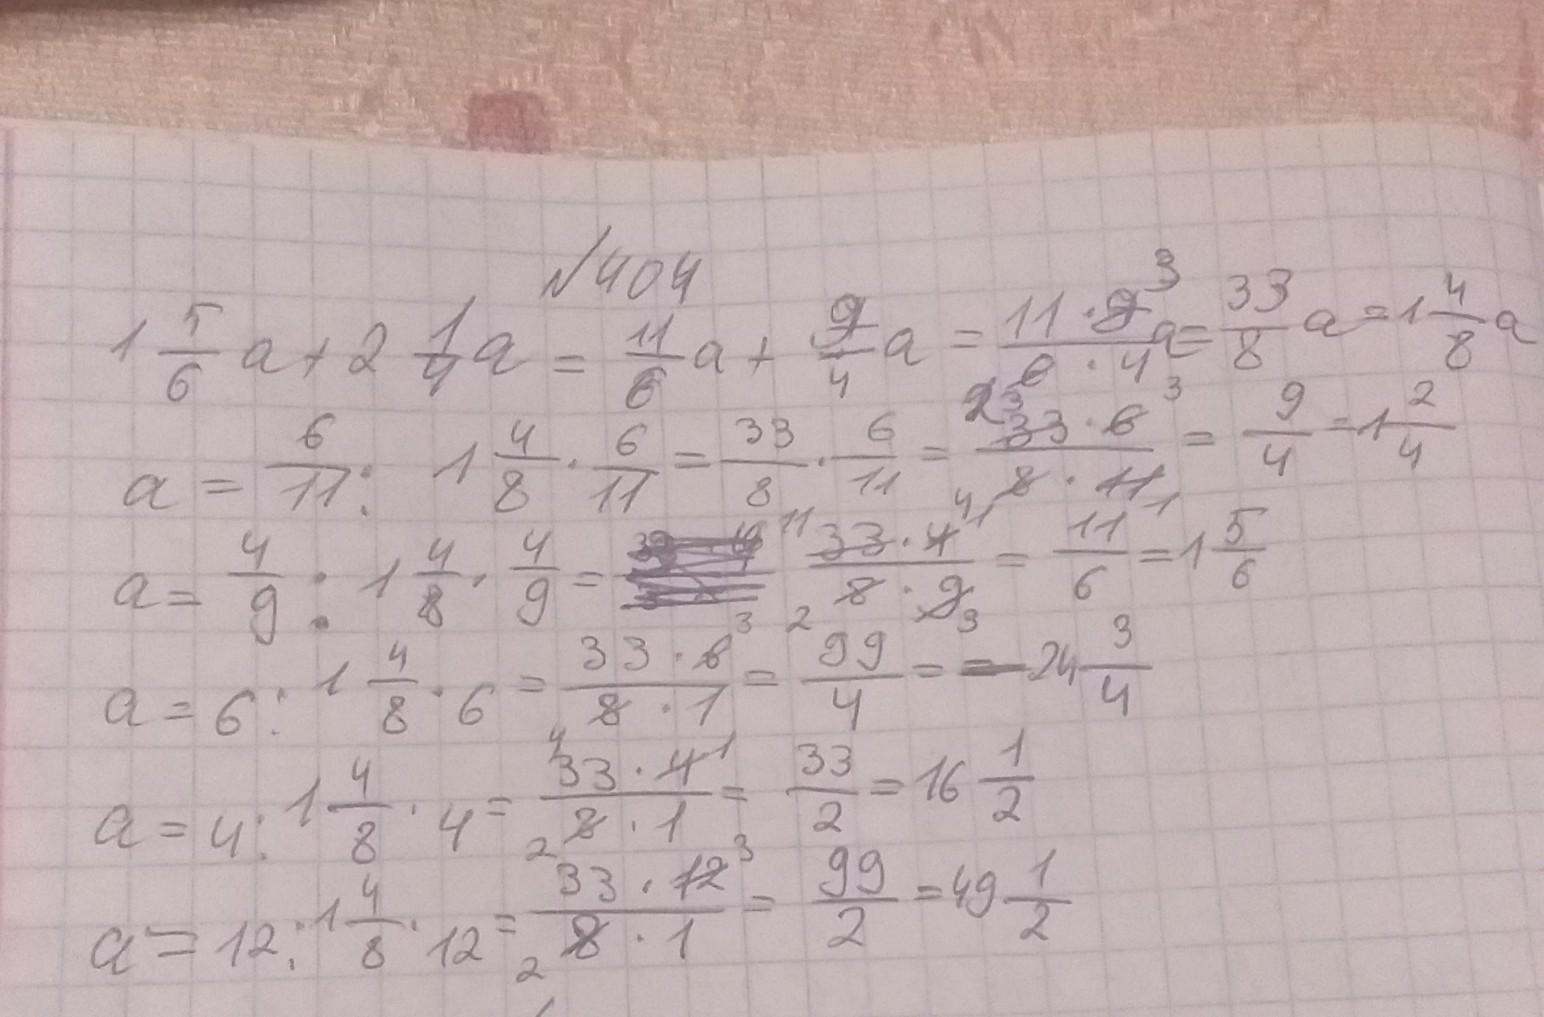 №404
1 5/6 a + 2 1/4 a = 11/6 a + 9/4 a = 11 · 9 3/6 · 4 2 a = 33/8 a = 1 4/8 a
a = 6/11 : 1 4/8 · 6/11 = 33/8 · 6/11 = 3 33 · 6 3/4 8 · 11 1 = 9/4 = 1 2/4
a = 4/9 : 1 4/8 · 4/9 = 11 33 · 4 1/2 8 · 9 3 = 11/6 = 1 5/6
a = 6 : 1 4/8 · 6 = 33 · 6 3/4 8 · 1 = 99/4 = 24 3/4
a = 4 : 1 4/8 · 4 = 33 · 4 1/2 8 · 1 = 33/2 = 16 1/2
a = 12 : 1 4/8 · 12 = 33 · 12 3/2 8 · 1 = 99/2 = 49 1/2